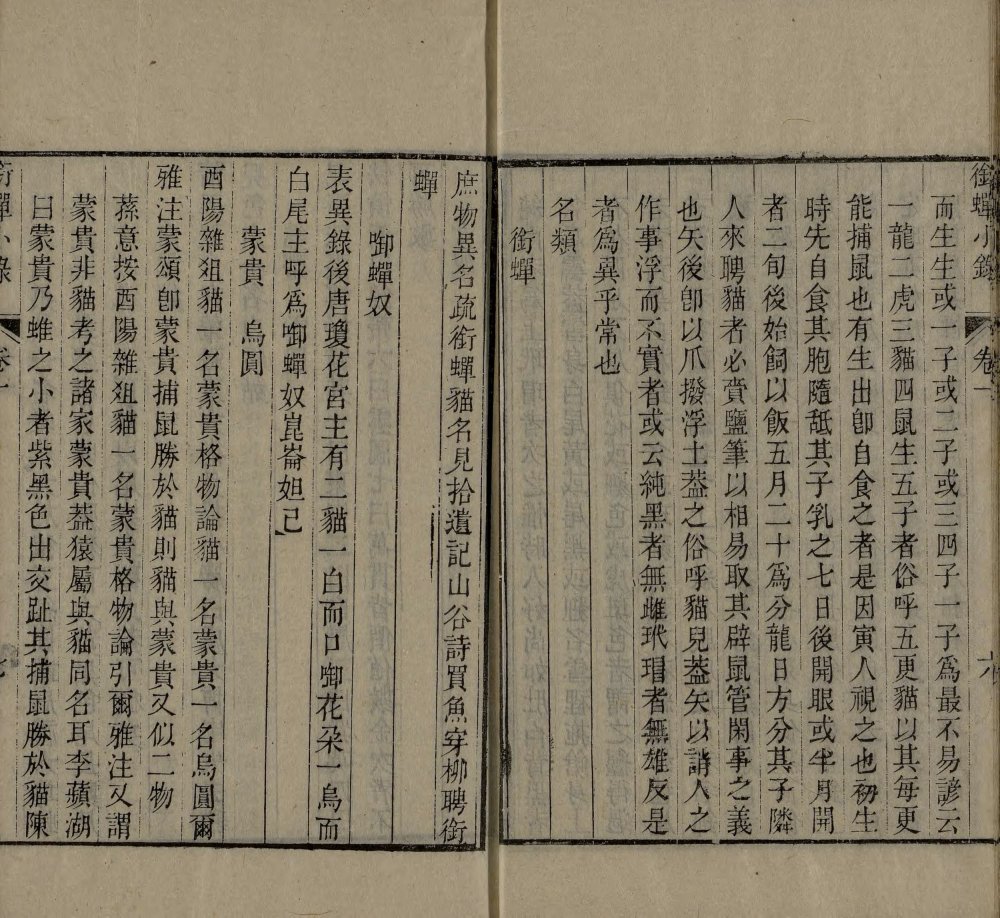 銜蟬小錄 卷一 六
而生生或一子或二子或三四子一子爲最不易諺云
一龍二虎三貓四鼠生五子者俗呼五更貓以其每更
能捕鼠也有生出卽自食之者是因寅人視之也初生
時先自食其胞隨舐其子乳之七日後開眼或半月開
者二旬後始飼以飯五月二十爲分龍日方分其子隣
人來聘貓者必賫鹽筆以相易取其辟鼠管閑事之義
也矢後卽以爪撥浮土葢之俗呼貓兒葢矢以誚人之
作事浮而不實者或云純黑者無雌玳瑁者無雄反是
者爲異乎常也
名類
銜蟬
庶物異名疏銜蟬貓名見拾遺記山谷詩買魚穿柳聘銜
蟬
啣蟬奴
表異錄後唐瓊花宮主有二貓一白而口啣花朶一烏而
白尾主呼爲啣蟬奴崑崙妲己
蒙貴 烏圓
酉陽雜俎貓一名蒙貴格物論貓一名蒙貴一名烏圓爾
雅注蒙頌卽蒙貴捕鼠勝於貓則貓與蒙貴又似二物
蓀意按酉陽雜俎貓一名蒙貴格物論引爾雅注又謂
蒙貴非貓考之諸家蒙貴葢猿屬與貓同名耳李蘋湖
曰蒙貴乃蜼之小者紫黑色出交趾其捕鼠勝於貓陳
銜蟬小錄 卷一